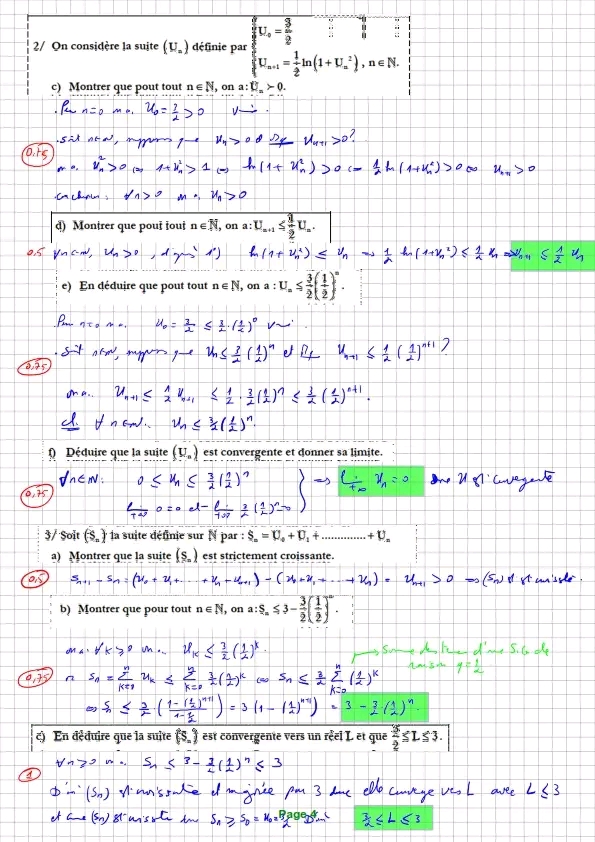 2/ On considère la suite (Uₙ) définie par { U₀ = 3/2
Uₙ₊₁ = 1/2 ln(1 + Uₙ²), n ∈ ℕ.
c) Montrer que pout tout n ∈ ℕ, on a : Uₙ ≻ 0.
. Pour n=0 on a U₀ = 3/2 > 0 vrai.
. Soit n∈ℕ, supposons que Uₙ > 0 et Uₙ₊₁ > 0 ?
0,75 on a Uₙ² > 0 ⇔ 1+Uₙ² > 1 ⇔ ln(1+Uₙ²) > 0 ⇔ 1/2 ln(1+Uₙ²) > 0 ⇔ Uₙ₊₁ > 0
conclusion : ∀n ≥ 0 on a Uₙ > 0
d) Montrer que pout tout n ∈ ℕ, on a : Uₙ₊₁ ≤ 1/2 Uₙ.
0,5 ∀n∈ℕ, Uₙ > 0, d'après 1°) ln(1+Uₙ²) ≤ Uₙ ⇒ 1/2 ln(1+Uₙ²) ≤ 1/2 Uₙ ⇒ Uₙ₊₁ ≤ 1/2 Uₙ
e) En déduire que pout tout n ∈ ℕ, on a : Uₙ ≤ 3/2 (1/2)ⁿ.
. Pour n=0 on a U₀ = 3/2 ≤ 3/2 · (1/2)⁰ vrai.
. Soit n∈ℕ, supposons que Uₙ ≤ 3/2 (1/2)ⁿ et Uₙ₊₁ ≤ 1/2 (1/2)ⁿ⁺¹ ?
0,75
on a. Uₙ₊₁ ≤ 1/2 Uₙ₊₁ ≤ 1/2 · 3/2 (1/2)ⁿ ≤ 3/2 (1/2)ⁿ⁺¹.
cl. ∀ n∈ℕ. Uₙ ≤ 3/2 (1/2)ⁿ.
f) Déduire que la suite (Uₙ) est convergente et donner sa limite.
∀n∈ℕ : 0 ≤ Uₙ ≤ 3/2 (1/2)ⁿ } ⇒ lim +∞ Uₙ = 0 donc U est convergente
0,75 lim +∞ 0 = 0 et lim +∞ 3/2 (1/2)ⁿ = 0
3/ Soit (Sₙ) la suite définie sur ℕ par : Sₙ = U₀ + U₁ + .............. + Uₙ
a) Montrer que la suite (Sₙ) est strictement croissante.
0,5 Sₙ₊₁ - Sₙ = (U₀ + U₁ + .... + Uₙ + Uₙ₊₁) - (U₀ + U₁ + ... + Uₙ) = Uₙ₊₁ > 0 ⇒ (Sₙ) est croissante.
b) Montrer que pour tout n ∈ ℕ, on a : Sₙ ≤ 3 - 3/2 (1/2)ⁿ.
on a ∀k ≥ 0 on a Uₖ ≤ 3/2 (1/2)ᵏ.
Somme des termes d'une S.G de
raison q = 1/2
0,75 Sₙ = Σ Uₖ ≤ Σ 3/2 (1/2)ᵏ ⇔ Sₙ ≤ 3/2 Σ (1/2)ᵏ
⇔ Sₙ ≤ 3/2 ((1-(1/2)ⁿ⁺¹)/(1-1/2)) = 3 (1 - (1/2)ⁿ⁺¹) = 3 - 3/2 (1/2)ⁿ.
c) En déduire que la suite (Sₙ) est convergente vers un réel L et que 3/2 ≤ L ≤ 3.
∀n ≥ 0 on a Sₙ ≤ 3 - 3/2 (1/2)ⁿ ≤ 3
1
D'où (Sₙ) est croissante et majorée par 3 donc elle converge vers L avec L ≤ 3
et comme (Sₙ) est croissante Sₙ ≥ S₀ = U₀ = 3/2 D'où 3/2 ≤ L ≤ 3
Page 4